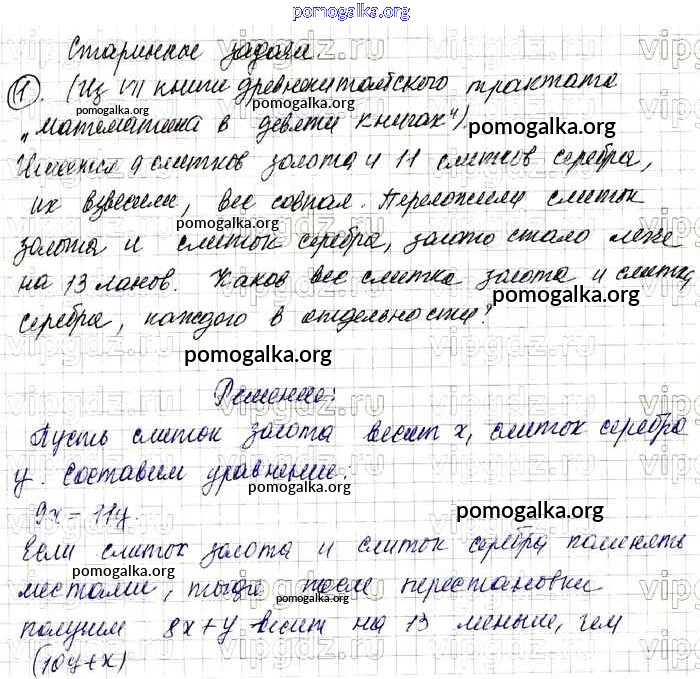 pomogalka.org
Старинные задачи
1. (Из VII книги древнекитайского трактата
pomogalka.org
„Математика в девяти книгах")
pomogalka.org
Имеется 9 слитков золота и 11 слитков серебра,
их взвесили, вес совпал. Переложили слиток
pomogalka.org
золота и слиток серебра, золото стало легче
на 13 ланов. Каков вес слитка золота и слитка
pomogalka.org
серебра, каждого в отдельности?
pomogalka.org
Решение:
Пусть слиток золота весит x, слиток серебра
y. Составим уравнение:
pomogalka.org
9x = 11y.
pomogalka.org
Если слиток золота и слиток серебра поменять
pomogalka.org
местами, тогда после перестановки
pomogalka.org
получим 8x+y весит на 13 меньше, чем
pomogalka.org
(10y+x)